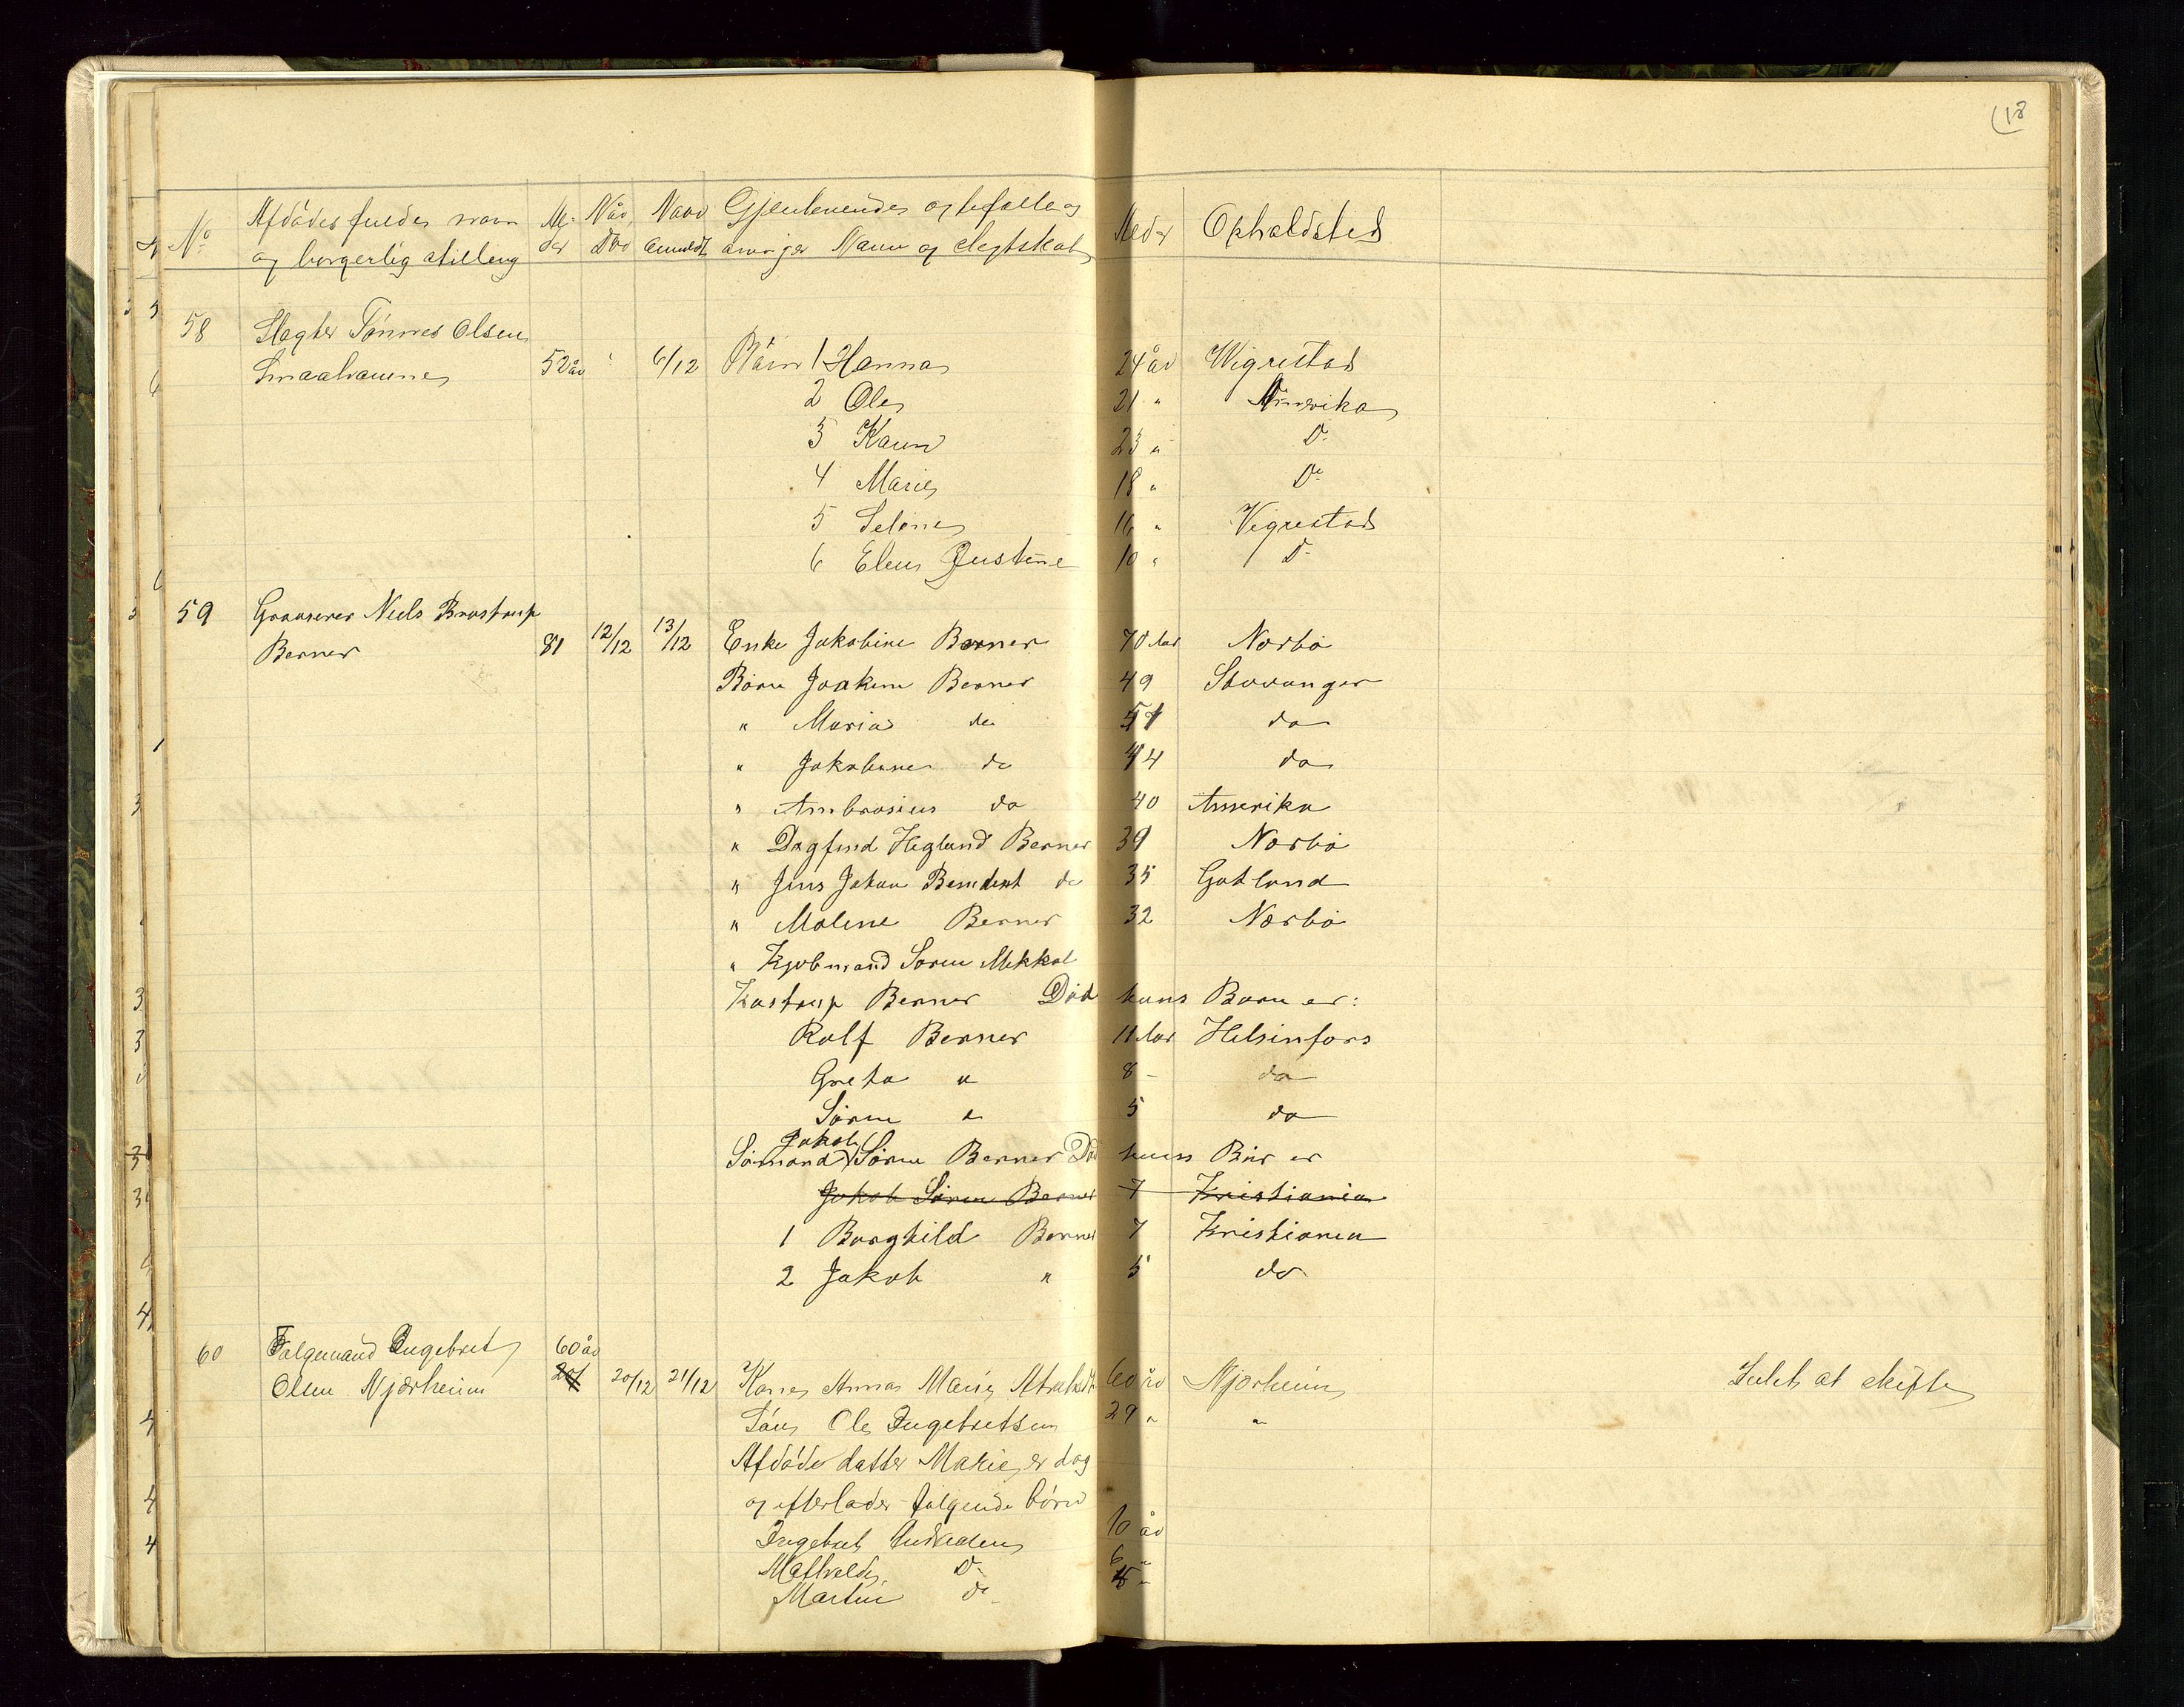 18
No Afdødes fulde navn Al- Når Naar Gjenlevendes og befalte og Alder Opholdsted
og borgerlig stilling der Død anmeldt arvinger Navn og slegtskab
58 Slagter Tönnes Olsen
Smaahaune 52 år 6/12 Börn 1 Hanna 24 år Wigrestad
2 Ole 21 " Amerika
3 Karen 23 " Do
4 Marie 18 " Do
5 Seline 16 " Vigrestad
6 Elen Justine 10 " Do
59 Grosserer Niels Brostrup
Berner 81 12/12 13/12 Enke Jakobine Berner 70 Aar Nærbø
Børn Joakim Berner 49 Stavanger
" Maria do 51 da
" Jakobine do 44 da
" Ambrosius do 40 Amerika
" Dagfind Hegland Berner 39 Nærbø
" Jens Johan Bendikt do 35 Gotland
" Moline Berner 32 Nærbø
" Kjøbmand Søren Mikkal
Kastrup Berner Död hans Børn er:
Rolf Berner 11 Aar Helsinfors
Greta " 8 - da
Søren " 5 da
Jakob
Sømand Søren Berner Død hans Bør er
Jakob Søren Berner 7 Kristiania
1 Borghild Berner 7 Kristiania
2 Jakob " 5 do
60 Folgemand Ingebret 60 år
Olsen Njærheim 20/12 21/12 Kone Anna Marie 60 år Njærheim Intet at skifte
Søn Ole Ingebretsen 29 " "
Afdøde datter Marie er dog
og efterlader følgende börn
Ingebret 10 år
Mathilde Do 6 "
Martin do